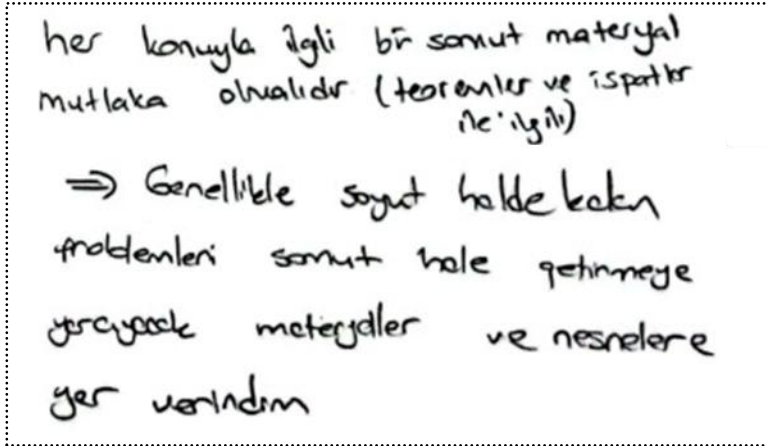 her konuyla ilgli bir somut materyal
mutlaka olmalıdır (teoremler ve ispatlar
ile ilgili)
⇒ Genellikle soyut halde kalan
problemleri somut hale getirmeye
yarayacak materyaller ve nesnelere
yer verirdim